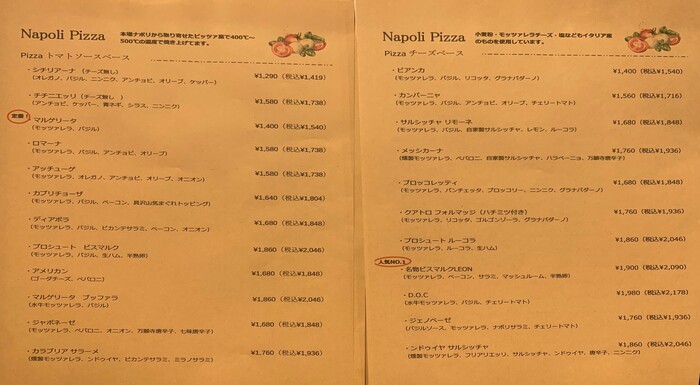 Napoli Pizza
本場ナポリから取り寄せたピッツァ窯で400℃～
500℃の温度で焼き上げてます。
Pizza トマトソースベース
・シチリアーナ (チーズ無し) ¥1,290 (税込¥1,419)
(オレガノ、バジル、ニンニク、アンチョビ、オリーブ、ケッパー)
・チチニエッリ (チーズ無し ) ¥1,580 (税込¥1,738)
(アンチョビ、ケッパー、青ネギ、シラス、ニンニク)
定番!
・マルゲリータ ¥1,400 (税込¥1,540)
(モッツァレラ、バジル)
・ロマーナ ¥1,580 (税込¥1,738)
(モッツァレラ、バジル、アンチョビ、オリーブ)
・アッチューゲ ¥1,580 (税込¥1,738)
(モッツァレラ、オレガノ、アンチョビ、オリーブ、オニオン)
・カプリチョーザ ¥1,640 (税込¥1,804)
(モッツァレラ、バジル、ベーコン、具沢山気まぐれトッピング)
・ディアボラ ¥1,680 (税込¥1,848)
(モッツァレラ、バジル、ピカンテサラミ、ベーコン、オニオン)
・プロシュート ビスマルク ¥1,860 (税込¥2,046)
(モッツァレラ、バジル、生ハム、半熟卵)
・アメリカン ¥1,680 (税込¥1,848)
(ゴーダチーズ、ペパロニ)
・マルゲリータ ブッファラ ¥1,860 (税込¥2,046)
(水牛モッツァレラ、バジル)
・ジャポネーゼ ¥1,680 (税込¥1,848)
(モッツァレラ、ペパロニ、オニオン、万願寺唐辛子、七味唐辛子)
・カラブリア サラーメ ¥1,760 (税込¥1,936)
(燻製モッツァレラ、ンドゥイヤ、ピカンテサラミ、ミラノサラミ)
Napoli Pizza
小麦粉・モッツァレラチーズ・塩などもイタリア産
のものを使用しています。
Pizza チーズベース
・ビアンカ ¥1,400 (税込¥1,540)
(モッツァレラ、バジル、リコッタ、グラナパダーノ)
・カンパーニャ ¥1,560 (税込¥1,716)
(モッツァレラ、バジル、アンチョビ、オリーブ、チェリートマト)
・サルシッチャ リモーネ ¥1,680 (税込¥1,848)
(モッツァレラ、バジル、自家製サルシッチャ、レモン、ルーコラ)
・メッシカーナ ¥1,760 (税込¥1,936)
(燻製モッツァレラ、ペパロニ、自家製サルシッチャ、ハラペーニョ、万願寺唐辛子)
・ブロッコレッティ ¥1,680 (税込¥1,848)
(モッツァレラ、パンチェッタ、ブロッコリー、ニンニク、グラナパダーノ)
・クアトロ フォルマッジ (ハチミツ付き) ¥1,760 (税込¥1,936)
(モッツァレラ、リコッタ、ゴルゴンゾーラ、グラナパダーノ)
・プロシュート ルーコラ ¥1,860 (税込¥2,046)
(モッツァレラ、ルーコラ、生ハム)
人気NO.1
・名物ビスマルクLEON ¥1,900 (税込¥2,090)
(モッツァレラ、ベーコン、サラミ、マッシュルーム、半熟卵)
・D.O.C ¥1,980 (税込¥2,178)
(水牛モッツァレラ、バジル、チェリートマト)
・ジェノベーゼ ¥1,760 (税込¥1,936)
(バジルソース、モッツァレラ、ナポリサラミ、チェリートマト)
・ンドゥイヤ サルシッチャ ¥1,860 (税込¥2,046)
(燻製モッツァレラ、フリアリエッリ、サルシッチャ、ンドゥイヤ、唐辛子、ニンニク)